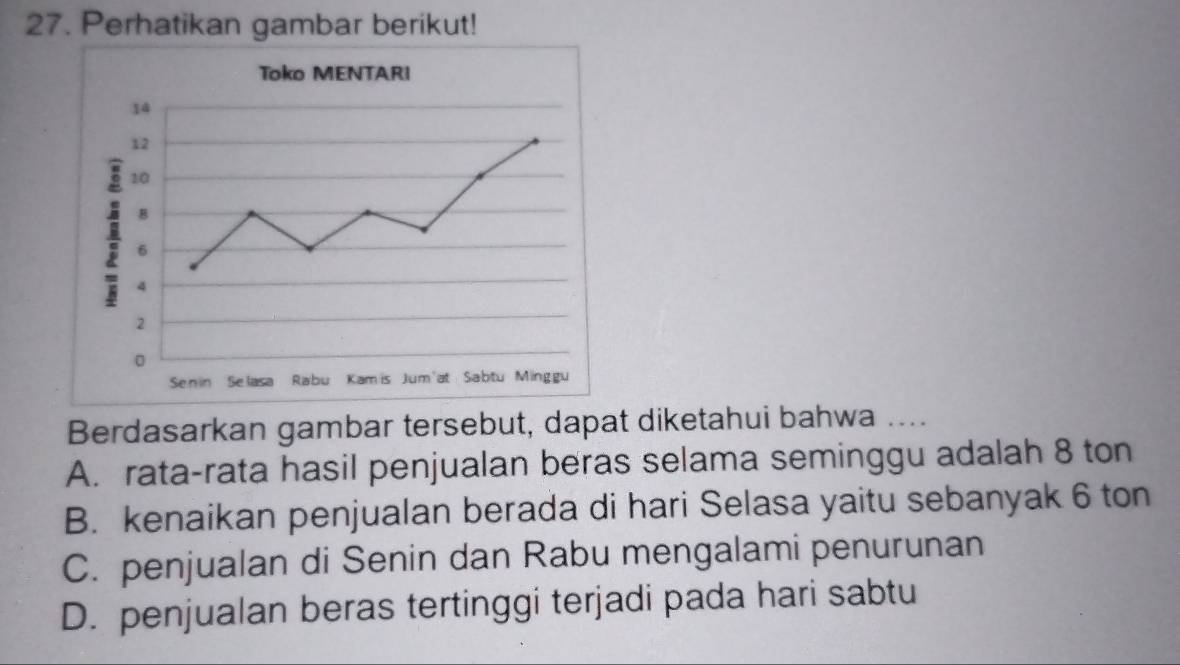 27. Perhatikan gambar berikut!
Toko MENTARI
14
12
10
8
6
4
2
0
Hasil Penjualan (ton)
Senin Selasa Rabu Kamis Jum'at Sabtu Minggu
Berdasarkan gambar tersebut, dapat diketahui bahwa ....
A. rata-rata hasil penjualan beras selama seminggu adalah 8 ton
B. kenaikan penjualan berada di hari Selasa yaitu sebanyak 6 ton
C. penjualan di Senin dan Rabu mengalami penurunan
D. penjualan beras tertinggi terjadi pada hari sabtu